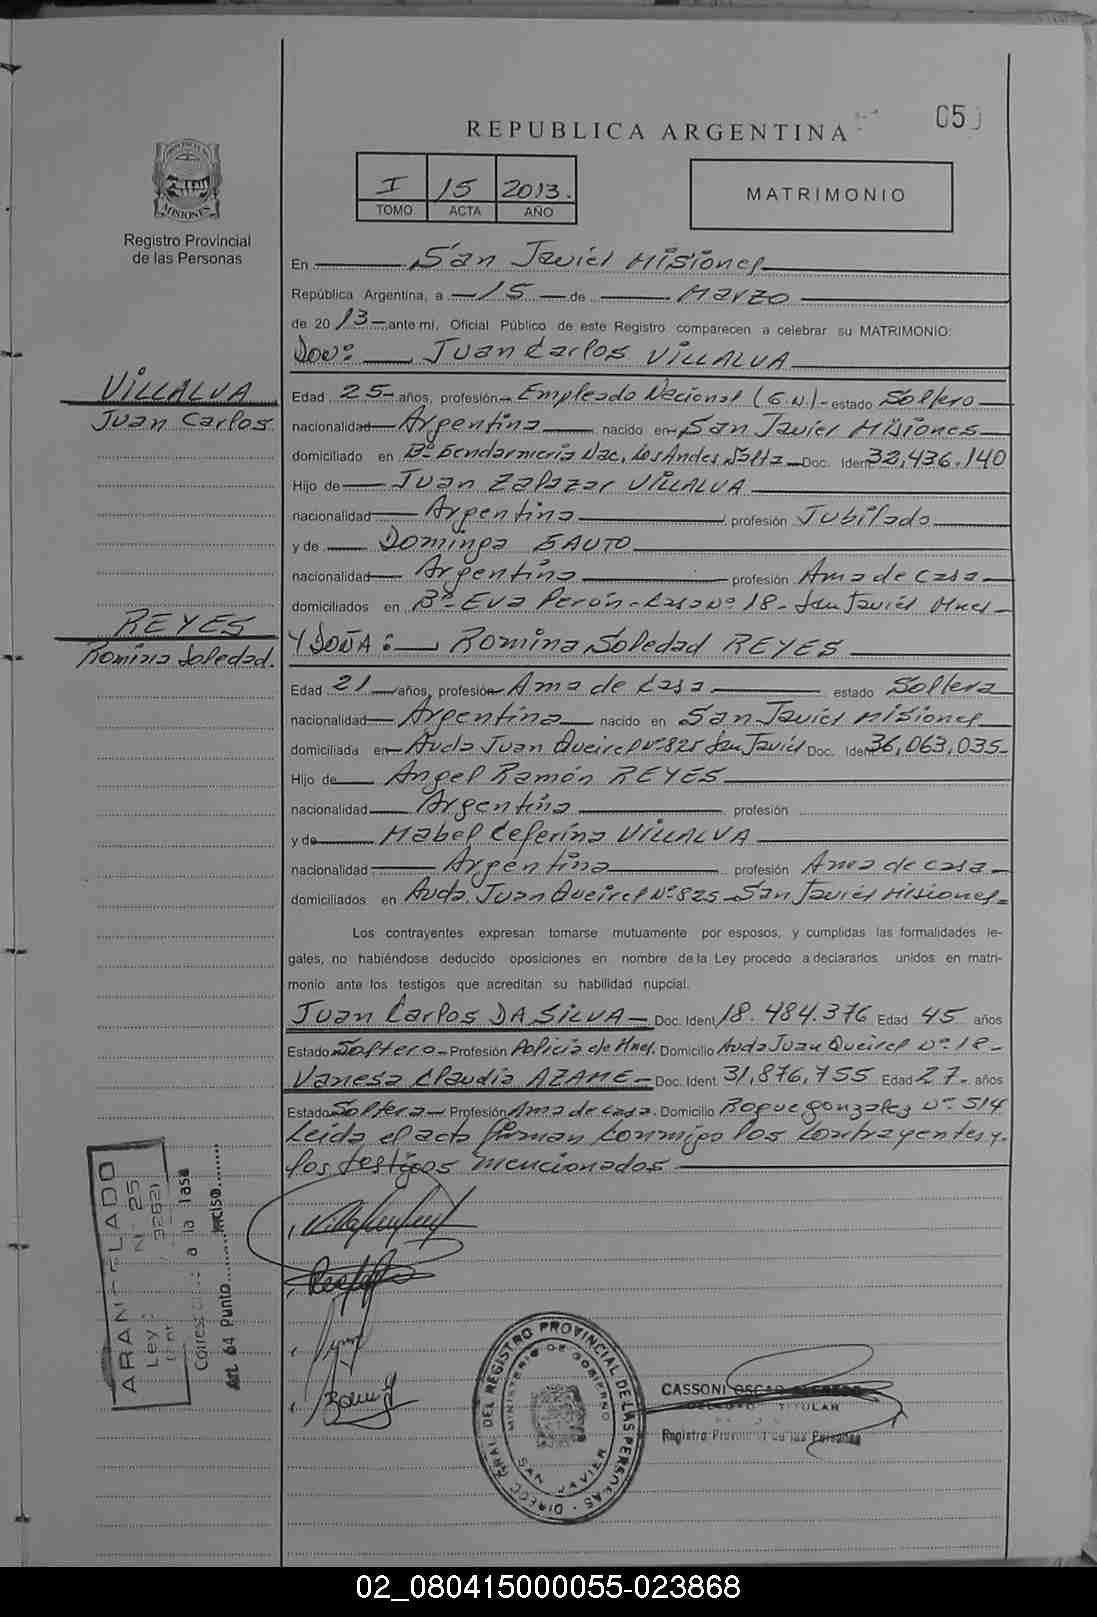 05
REPUBLICA ARGENTINA
PROVINCIA DE
MISIONES
Registro Provincial
de las Personas
I 15 2013.
TOMO ACTA AÑO
MATRIMONIO
En San Javier Misiones
República Argentina, a 15 de Marzo
de 2013 ante mí, Oficial Público de este Registro comparecen a celebrar su MATRIMONIO:
Don: Juan Carlos VILLALVA
VILLALVA
Juan Carlos
Edad 25 años, profesión Empleado Nacional (G.N.) estado Soltero
nacionalidad Argentina nacido en San Javier Misiones
domiciliado en Bº Gendarmeria Nac. Los Andes Salta Doc. Iden 32,436.140
Hijo de Juan Zalazar VILLALVA
nacionalidad Argentina profesión Jubilado
y de Dominga BAUTO
nacionalidad Argentina profesión Ama de casa
domiciliados en Bº Eva Perón - Casa Nº 18 - San Javier Mnes
REYES
Romina Soledad.
Y DOÑA: Romina Soledad REYES
Edad 21 años, profesión Ama de Casa estado Soltera
nacionalidad Argentina nacido en San Javier Misiones
domiciliada en Avda Juan Queirel Nº 825 San Javier Doc. Iden 36,063,035
Hijo de Angel Ramón REYES
nacionalidad Argentina profesión
y de Mabel Ceferina VILLALVA
nacionalidad Argentina profesión Ama de casa
domiciliados en Avda. Juan Queirel Nº 825 San Javier Misiones
Los contrayentes expresan tomarse mutuamente por esposos, y cumplidas las formalidades le-
gales, no habiéndose deducido oposiciones en nombre de la Ley procedo a declararlos unidos en matri-
monio ante los testigos que acreditan su habilidad nupcial.
Juan Carlos DA SILVA Doc. Ident 18.484.376 Edad 45 años
Estado Soltero Profesión Policia de Mnes. Domicilio Avda Juan Queirel Nº 18
Vanesa Claudia AZAME Doc. Ident. 31,876,755 Edad 27 años
Estado Soltera Profesión Ama de casa. Domicilio Roque gonzalez Nº 514
Leida el acta firman conmigo los contrayentes y
los testigos mencionados
ARANCELADO
Ley
Corresponde a la tasa
Art. 64 Punto inciso
DIREC. GRAL. DEL REGISTRO PROVINCIAL DE LAS PERSONAS
MINISTERIO DE GOBIERNO
SAN JAVIER
CASSONI OSCAR
TITULAR
Registro Provincial de las Personas
02_080415000055-023868